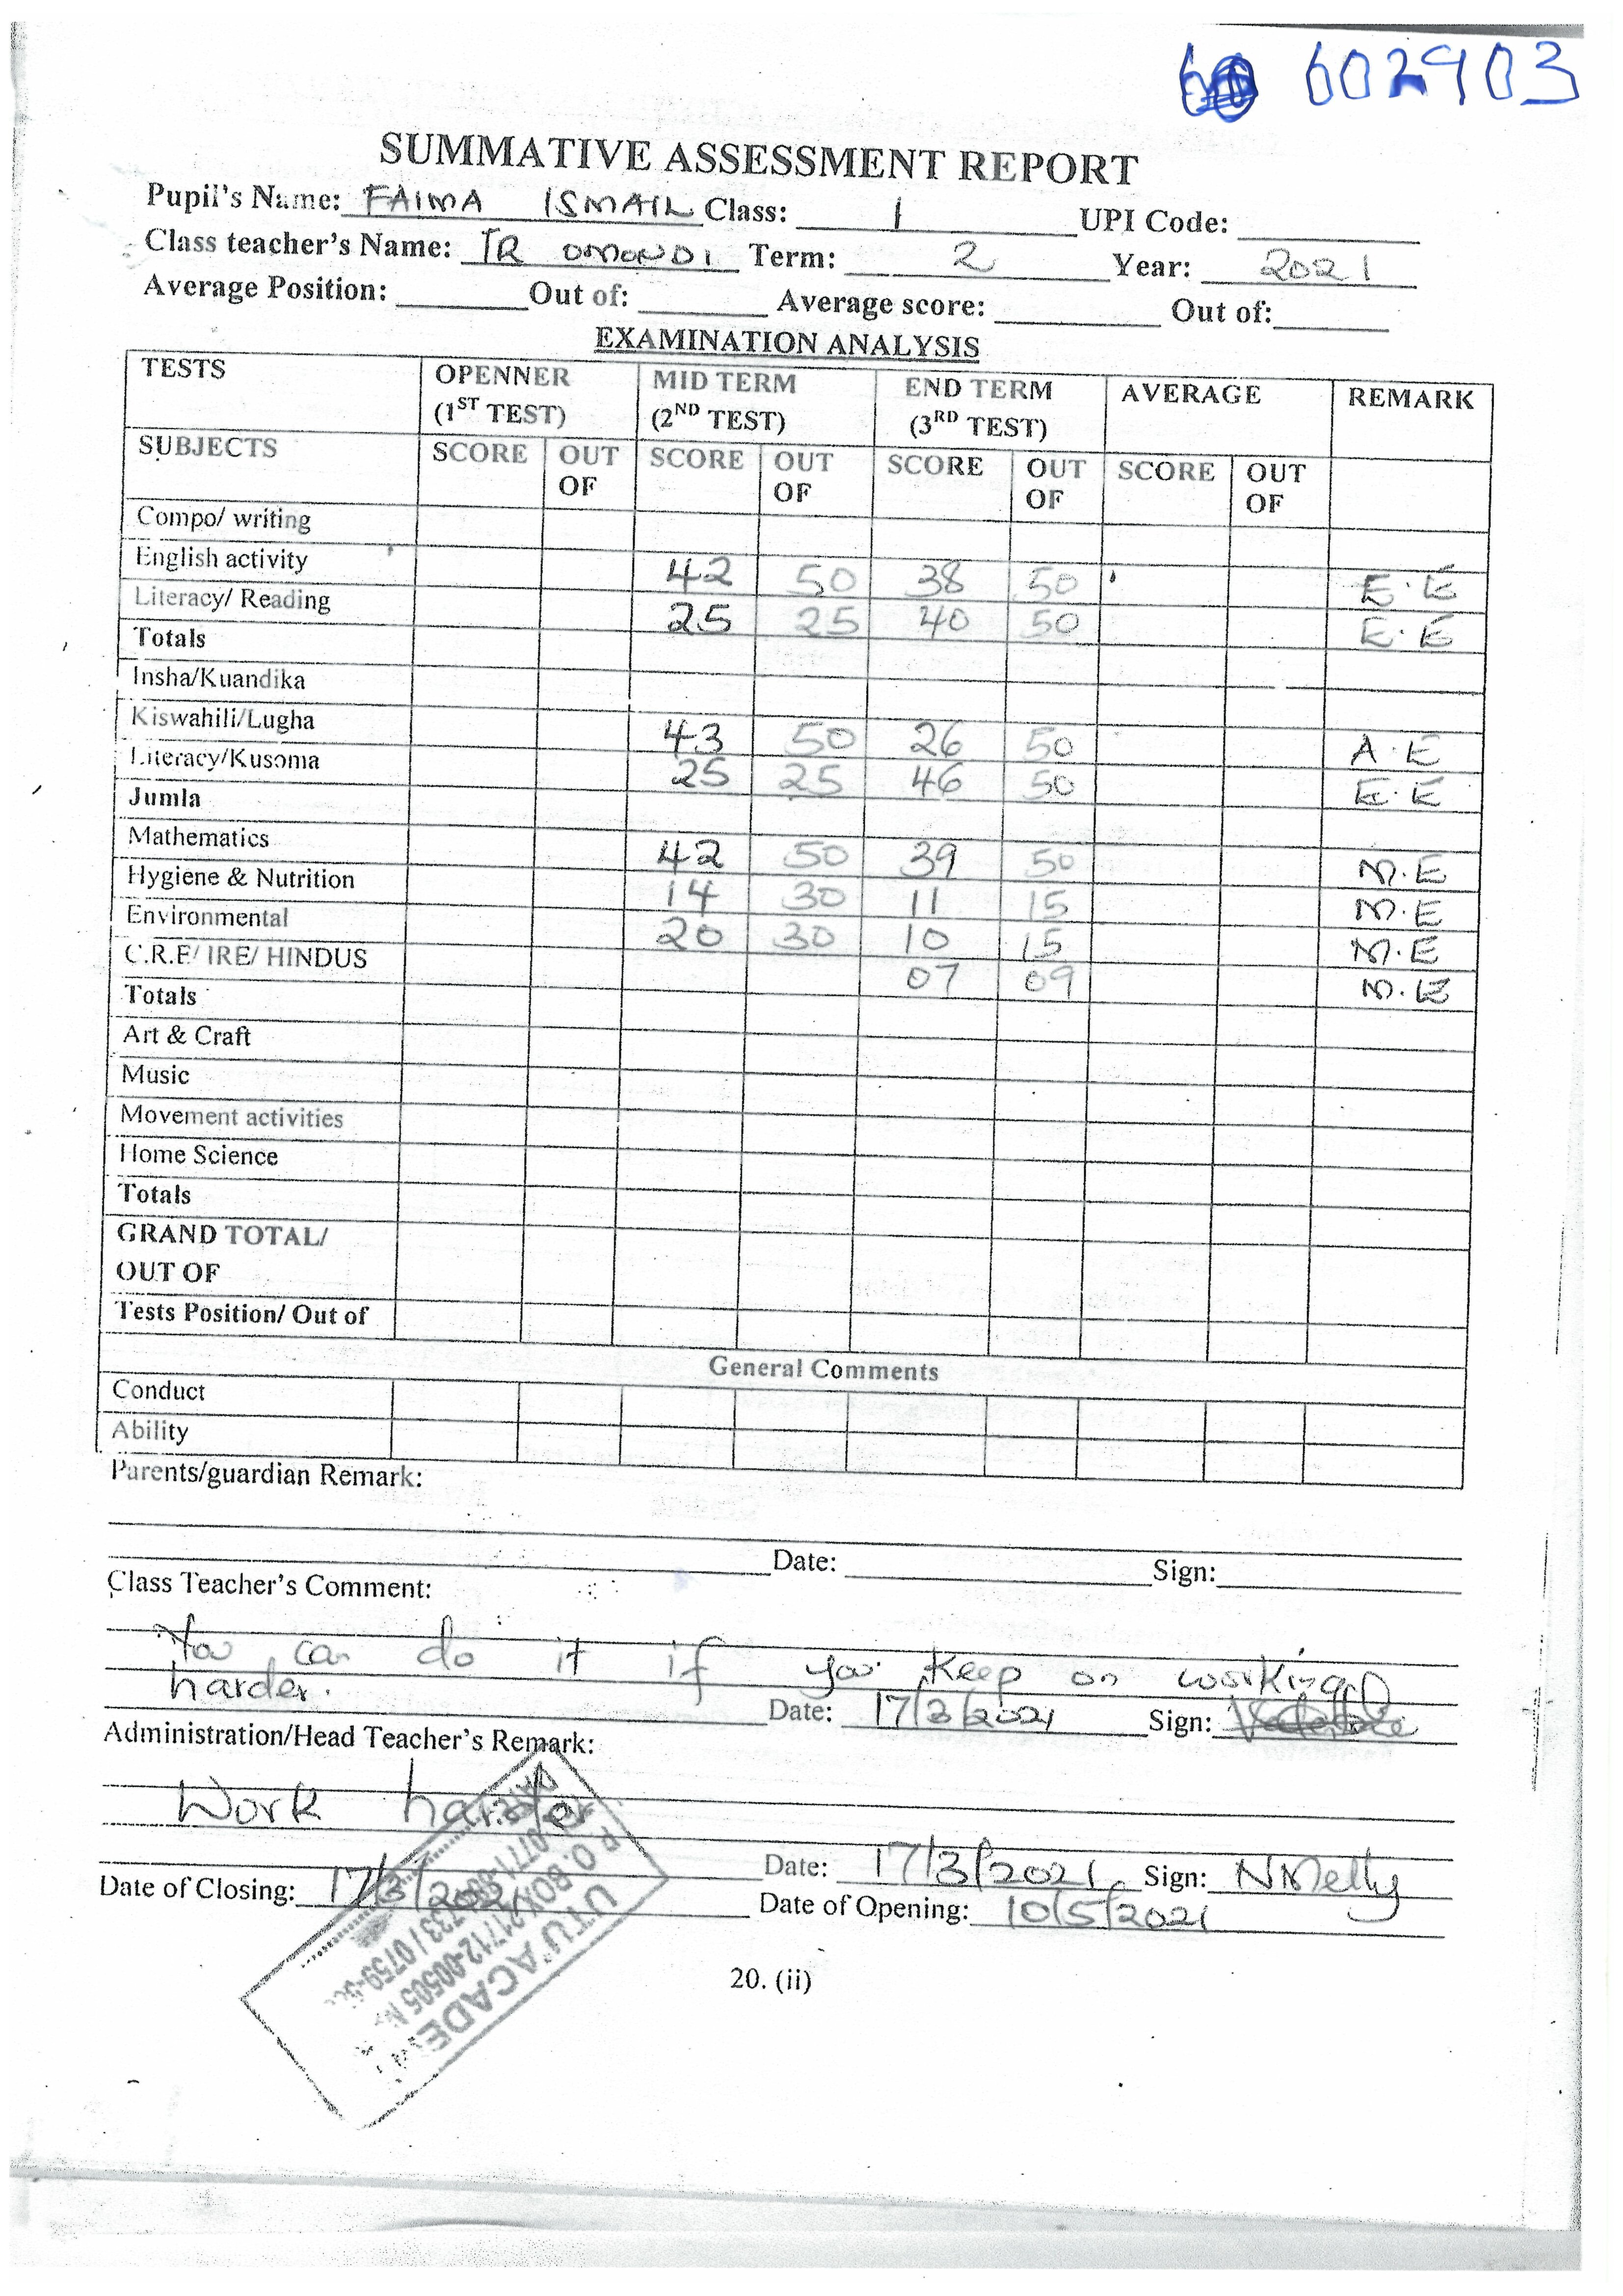 602903
SUMMATIVE ASSESSMENT REPORT
Pupil's Name: FAIMA ISMAIL Class: 1 UPI Code:
Class teacher's Name: TR OMONDI Term: 2 Year: 2021
Average Position: Out of: Average score: Out of:
EXAMINATION ANALYSIS
TESTS OPENNER (1ST TEST) MID TERM (2ND TEST) END TERM (3RD TEST) AVERAGE REMARK
SUBJECTS SCORE OUT OF SCORE OUT OF SCORE OUT OF SCORE OUT OF
Compo/ writing
English activity 42 50 38 50 E.E
Literacy/ Reading 25 25 40 50 E.E
Totals
Insha/Kuandika
Kiswahili/Lugha 43 50 26 50 A.E
Literacy/Kusoma 25 25 46 50 E.E
Jumla
Mathematics 42 50 39 50 M.E
Hygiene & Nutrition 14 30 11 15 M.E
Environmental 20 30 10 15 M.E
C.R.E/ IRE/ HINDUS 07 09 M.E
Totals
Art & Craft
Music
Movement activities
Home Science
Totals
GRAND TOTAL/
OUT OF
Tests Position/ Out of
General Comments
Conduct
Ability
Parents/guardian Remark:
Date: Sign:
Class Teacher's Comment:
You can do it if you keep on working
harder.
Date: 17/3/2021 Sign:
Administration/Head Teacher's Remark:
Work harder
Date: 17/3/2021 Sign: NMelly
Date of Closing: 17/3/2021 Date of Opening: 10/5/2021
P.O.BOX 21712-00505
20. (ii)